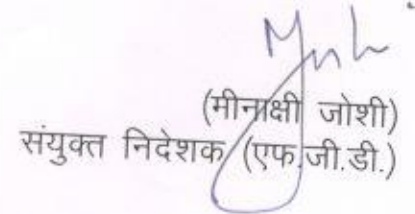 (मीनाक्षी जोशी)
संयुक्त निदेशक (एफ.जी.डी.)